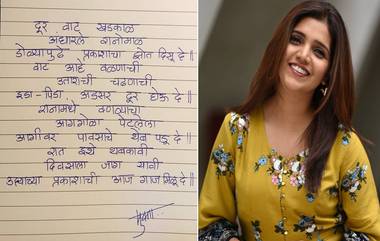 दूर वाट खडकाळ
अंधारले रानोमाळ
डोळ्यापुढे प्रकाशाचा झोत दिसू दे ॥
वाट आहे वळणाची
उताराची चढणाची
इडा-पिडा, अडसर दूर होऊ दे ॥
रानामध्ये वणव्याचा
आगगोळा पेटलेला
आगीवर पावसाचे थेंब पडू दे ॥
रात इथे थबकावी
दिवसाला जाग यावी
उद्याच्या प्रकाशाची आज गाज मिळू दे ॥